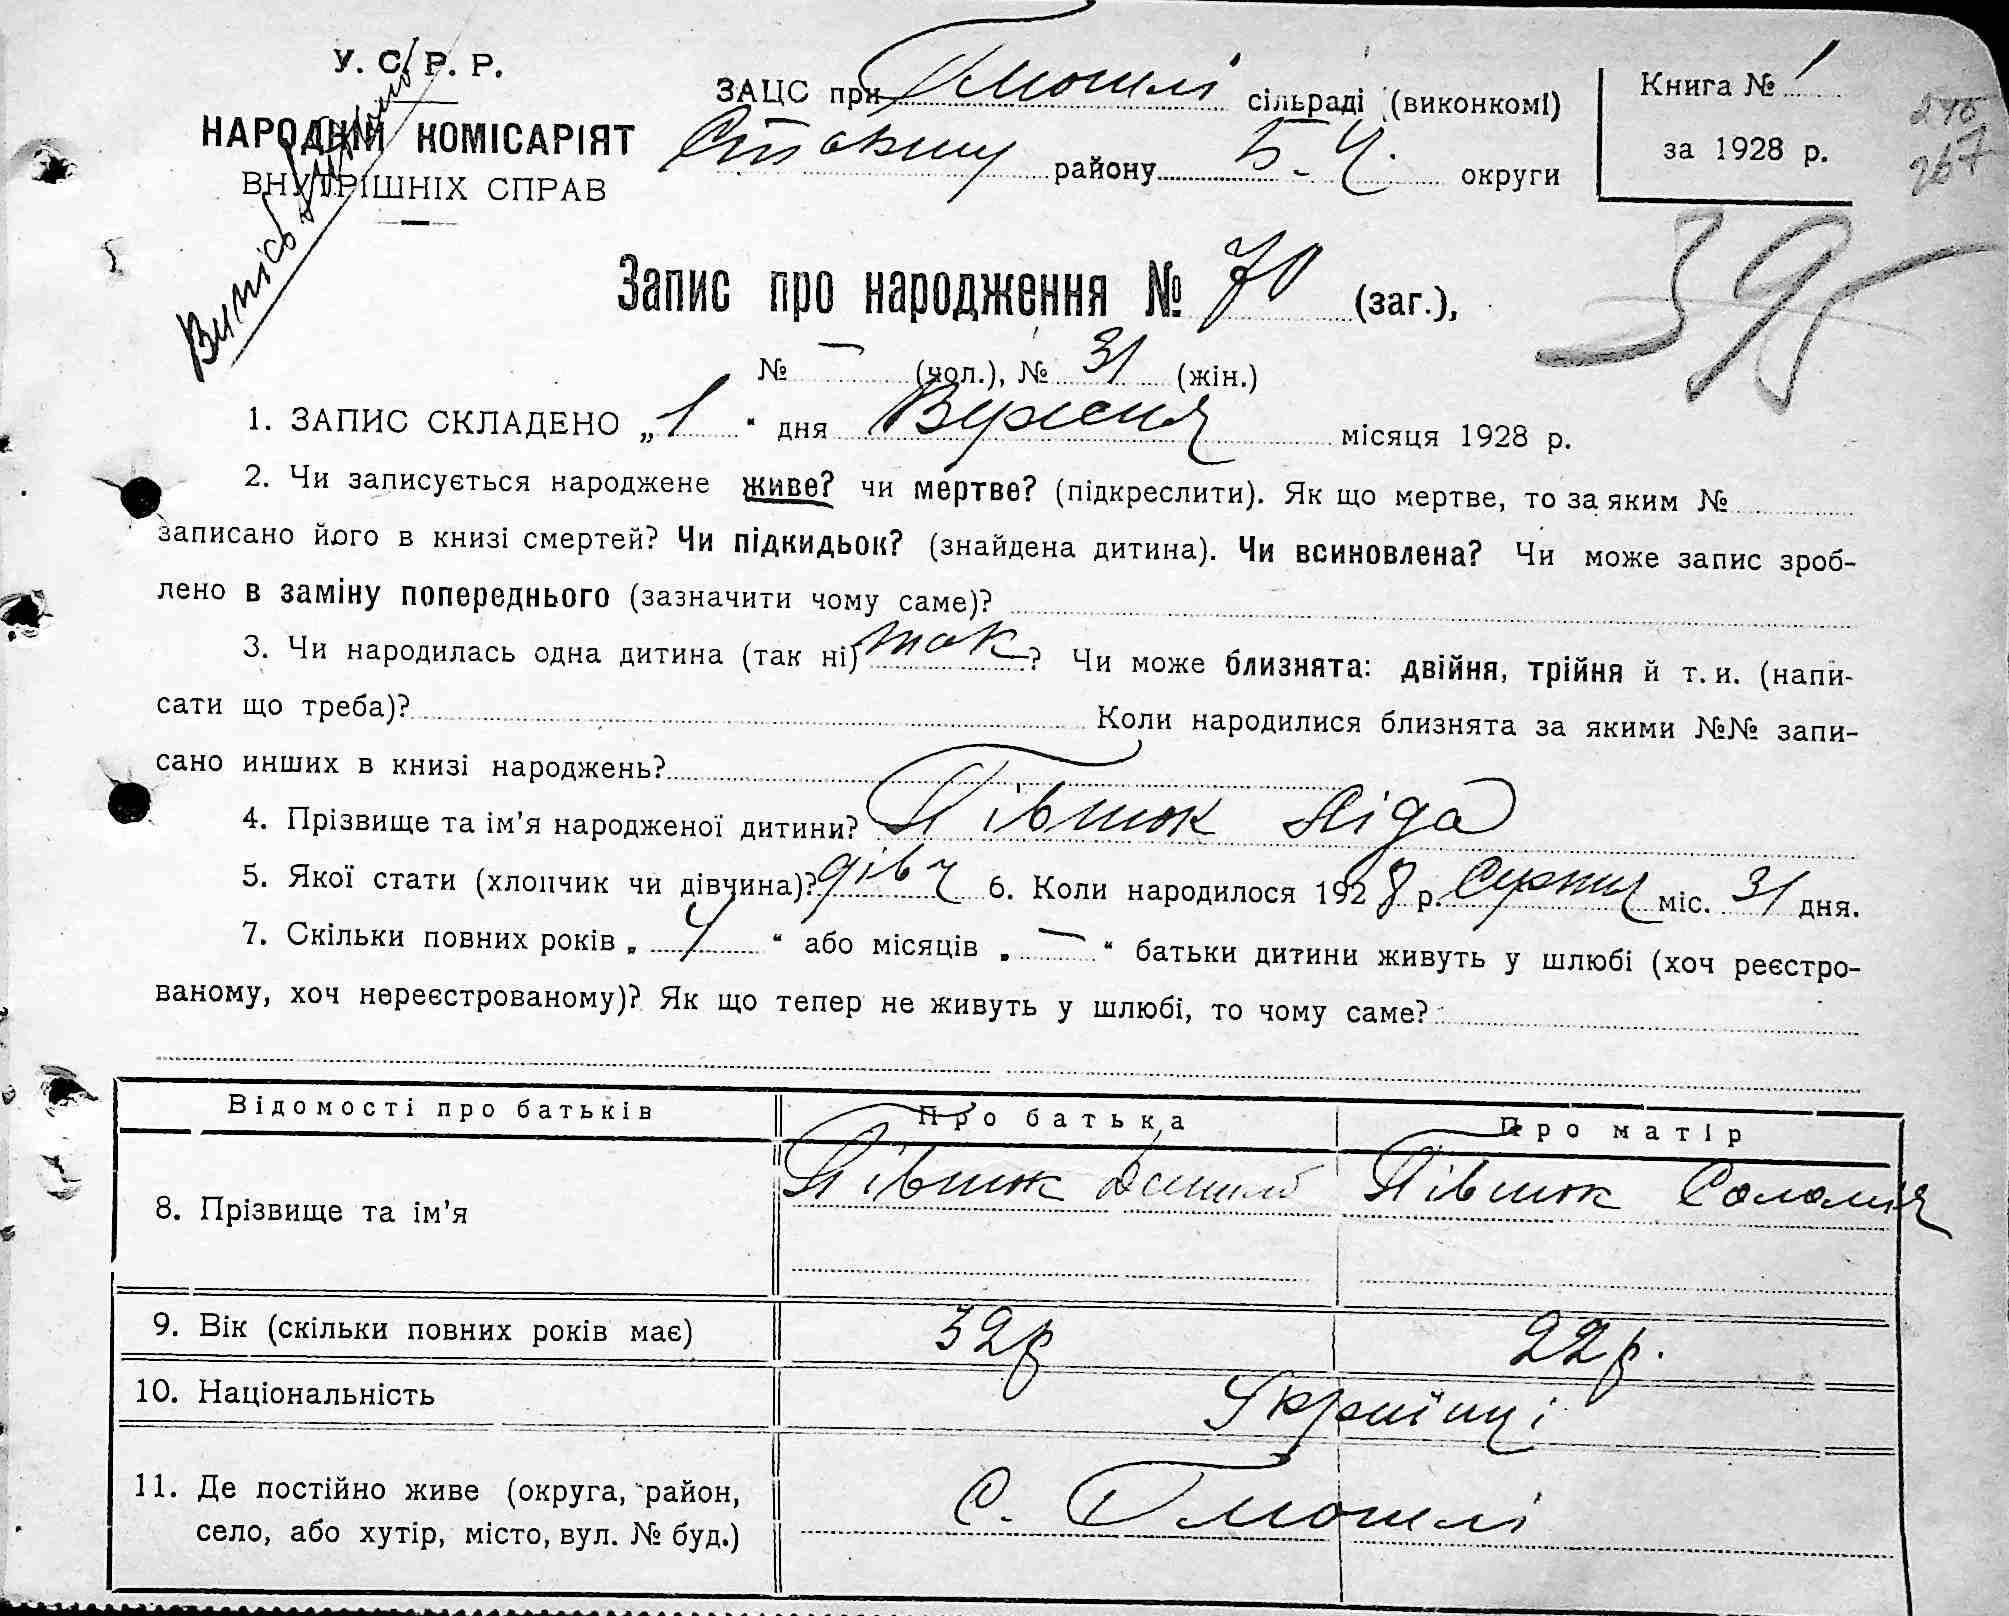 У. С. Р. Р.
НАРОДНІЙ КОМІСАРІЯТ
ВНУТРІШНІХ СПРАВ
ЗАЦС при Тмошлі сільраді (виконкомі)
району Б-Ч. округи
Книга № 1
за 1928 р.
267
395
Запис про народження № 70 (заг.),
№ — (чол.), № 31 (жін.)
1. ЗАПИС СКЛАДЕНО „1“ дня Вересня місяця 1928 р.
2. Чи записується народжене живе? чи мертве? (підкреслити). Як що мертве, то за яким №
записано його в книзі смертей? Чи підкидьок? (знайдена дитина). Чи всиновлена? Чи може запис зроб-
лено в заміну попереднього (зазначити чому саме)?
3. Чи народилась одна дитина (так ні) так? Чи може близнята: двійня, трійня й т. и. (напи-
сати що треба)? Коли народилися близнята за якими №№ запи-
сано инших в книзі народжень?
4. Прізвище та ім’я народженої дитини? Півнюк Ліда
5. Якої стати (хлопчик чи дівчина)? дівч 6. Коли народилося 1928 р. Серпня міс. 31 дня.
7. Скільки повних років „ 4 “ або місяців „ — “ батьки дитини живуть у шлюбі (хоч реєстро-
ваному, хоч нереєстрованому)? Як що тепер не живуть у шлюбі, то чому саме?
Відомості про батьків Про батька Про матір
8. Прізвище та ім’я Півнюк Данило Півнюк Соломія
9. Вік (скільки повних років має) 32р 22р.
10. Національність Українці
11. Де постійно живе (округа, район,
село, або хутір, місто, вул. № буд.) С. Тмошлі